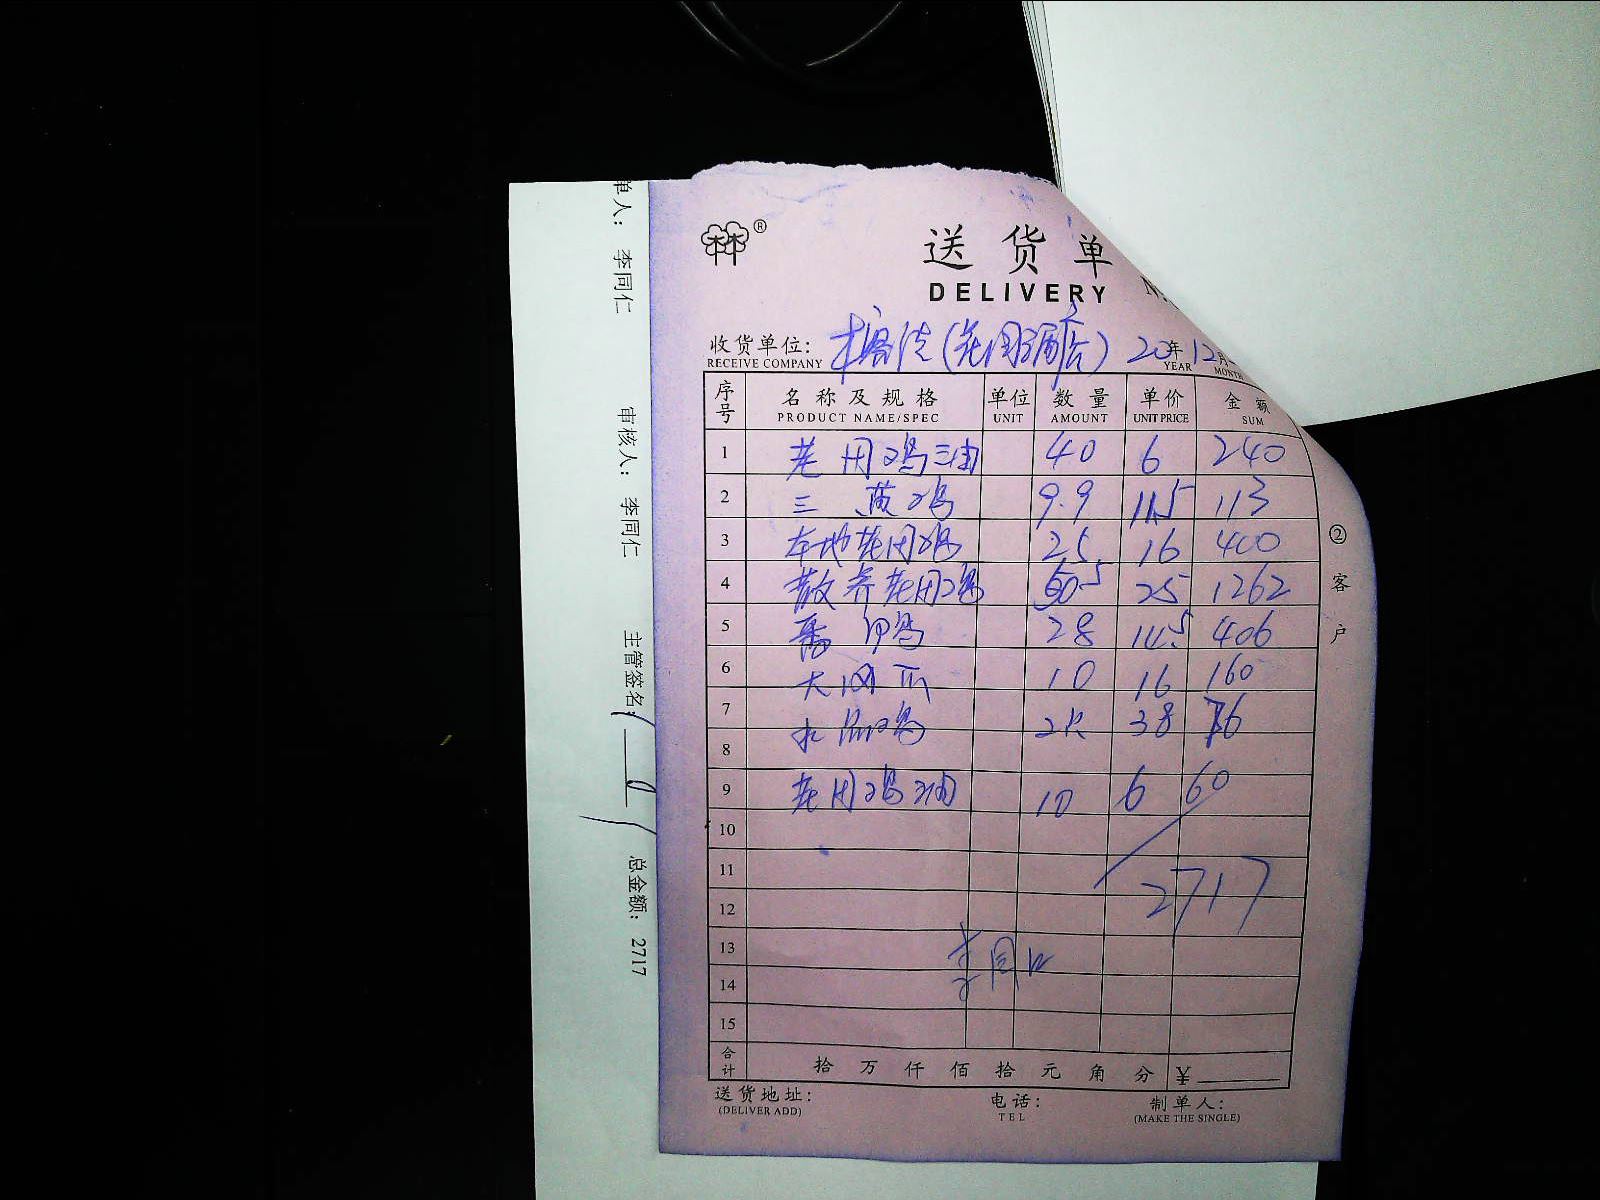 ®
送货单
DELIVERY
收货单位:
RECEIVE COMPANY
20年12月
YEAR MONTH
序号 名称及规格 单位 数量 单价 金额
PRODUCT NAME/SPEC UNIT AMOUNT UNIT PRICE SUM
1 鸡油 40 6 240
2 三黄鸡 9.9 11.5 113
3 本地 鸡 25 16 400
4 散养 鸡 50.5 25 1262
5 番鸭 28 14.5 406
6 大 爪 10 16 160
7 水 鸡 2只 38 76
8
9 鸡油 10 6 60
10
11
2717
12
13
李同仁
14
15
合计 拾万仟佰拾元角分 ¥
送货地址: 电话: 制单人:
(DELIVER ADD) TEL (MAKE THE SINGLE)
②客户
单人: 李同仁 审核人: 李同仁 主管签名: 总金额: 2717